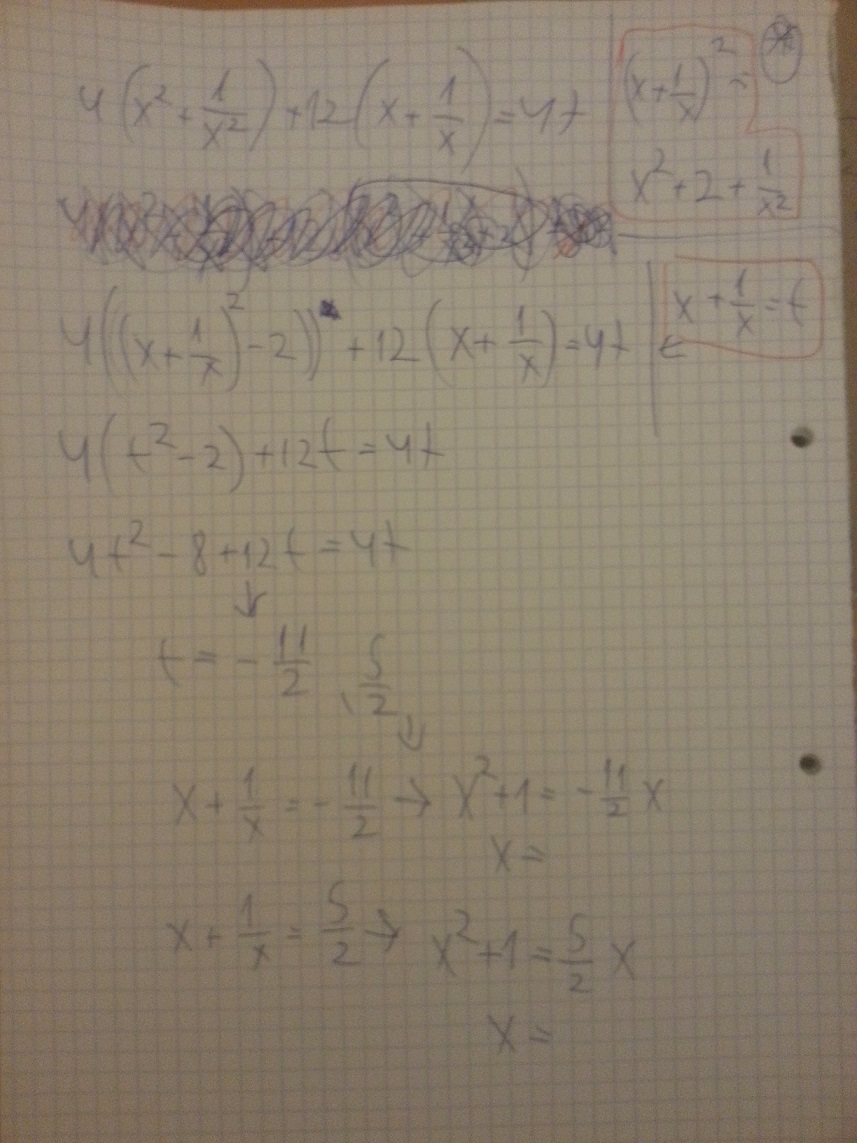 4(x² + 1/x²) + 12(x + 1/x) = 47
(x + 1/x)² =
x² + 2 + 1/x²
4((x + 1/x)² - 2) + 12(x + 1/x) = 47 ←
x + 1/x = t
4(t² - 2) + 12t = 47
4t² - 8 + 12t = 47
↓
t = - 11/2 , 5/2
↓
x + 1/x = - 11/2 → x² + 1 = - 11/2 x
x =
x + 1/x = 5/2 → x² + 1 = 5/2 x
x =